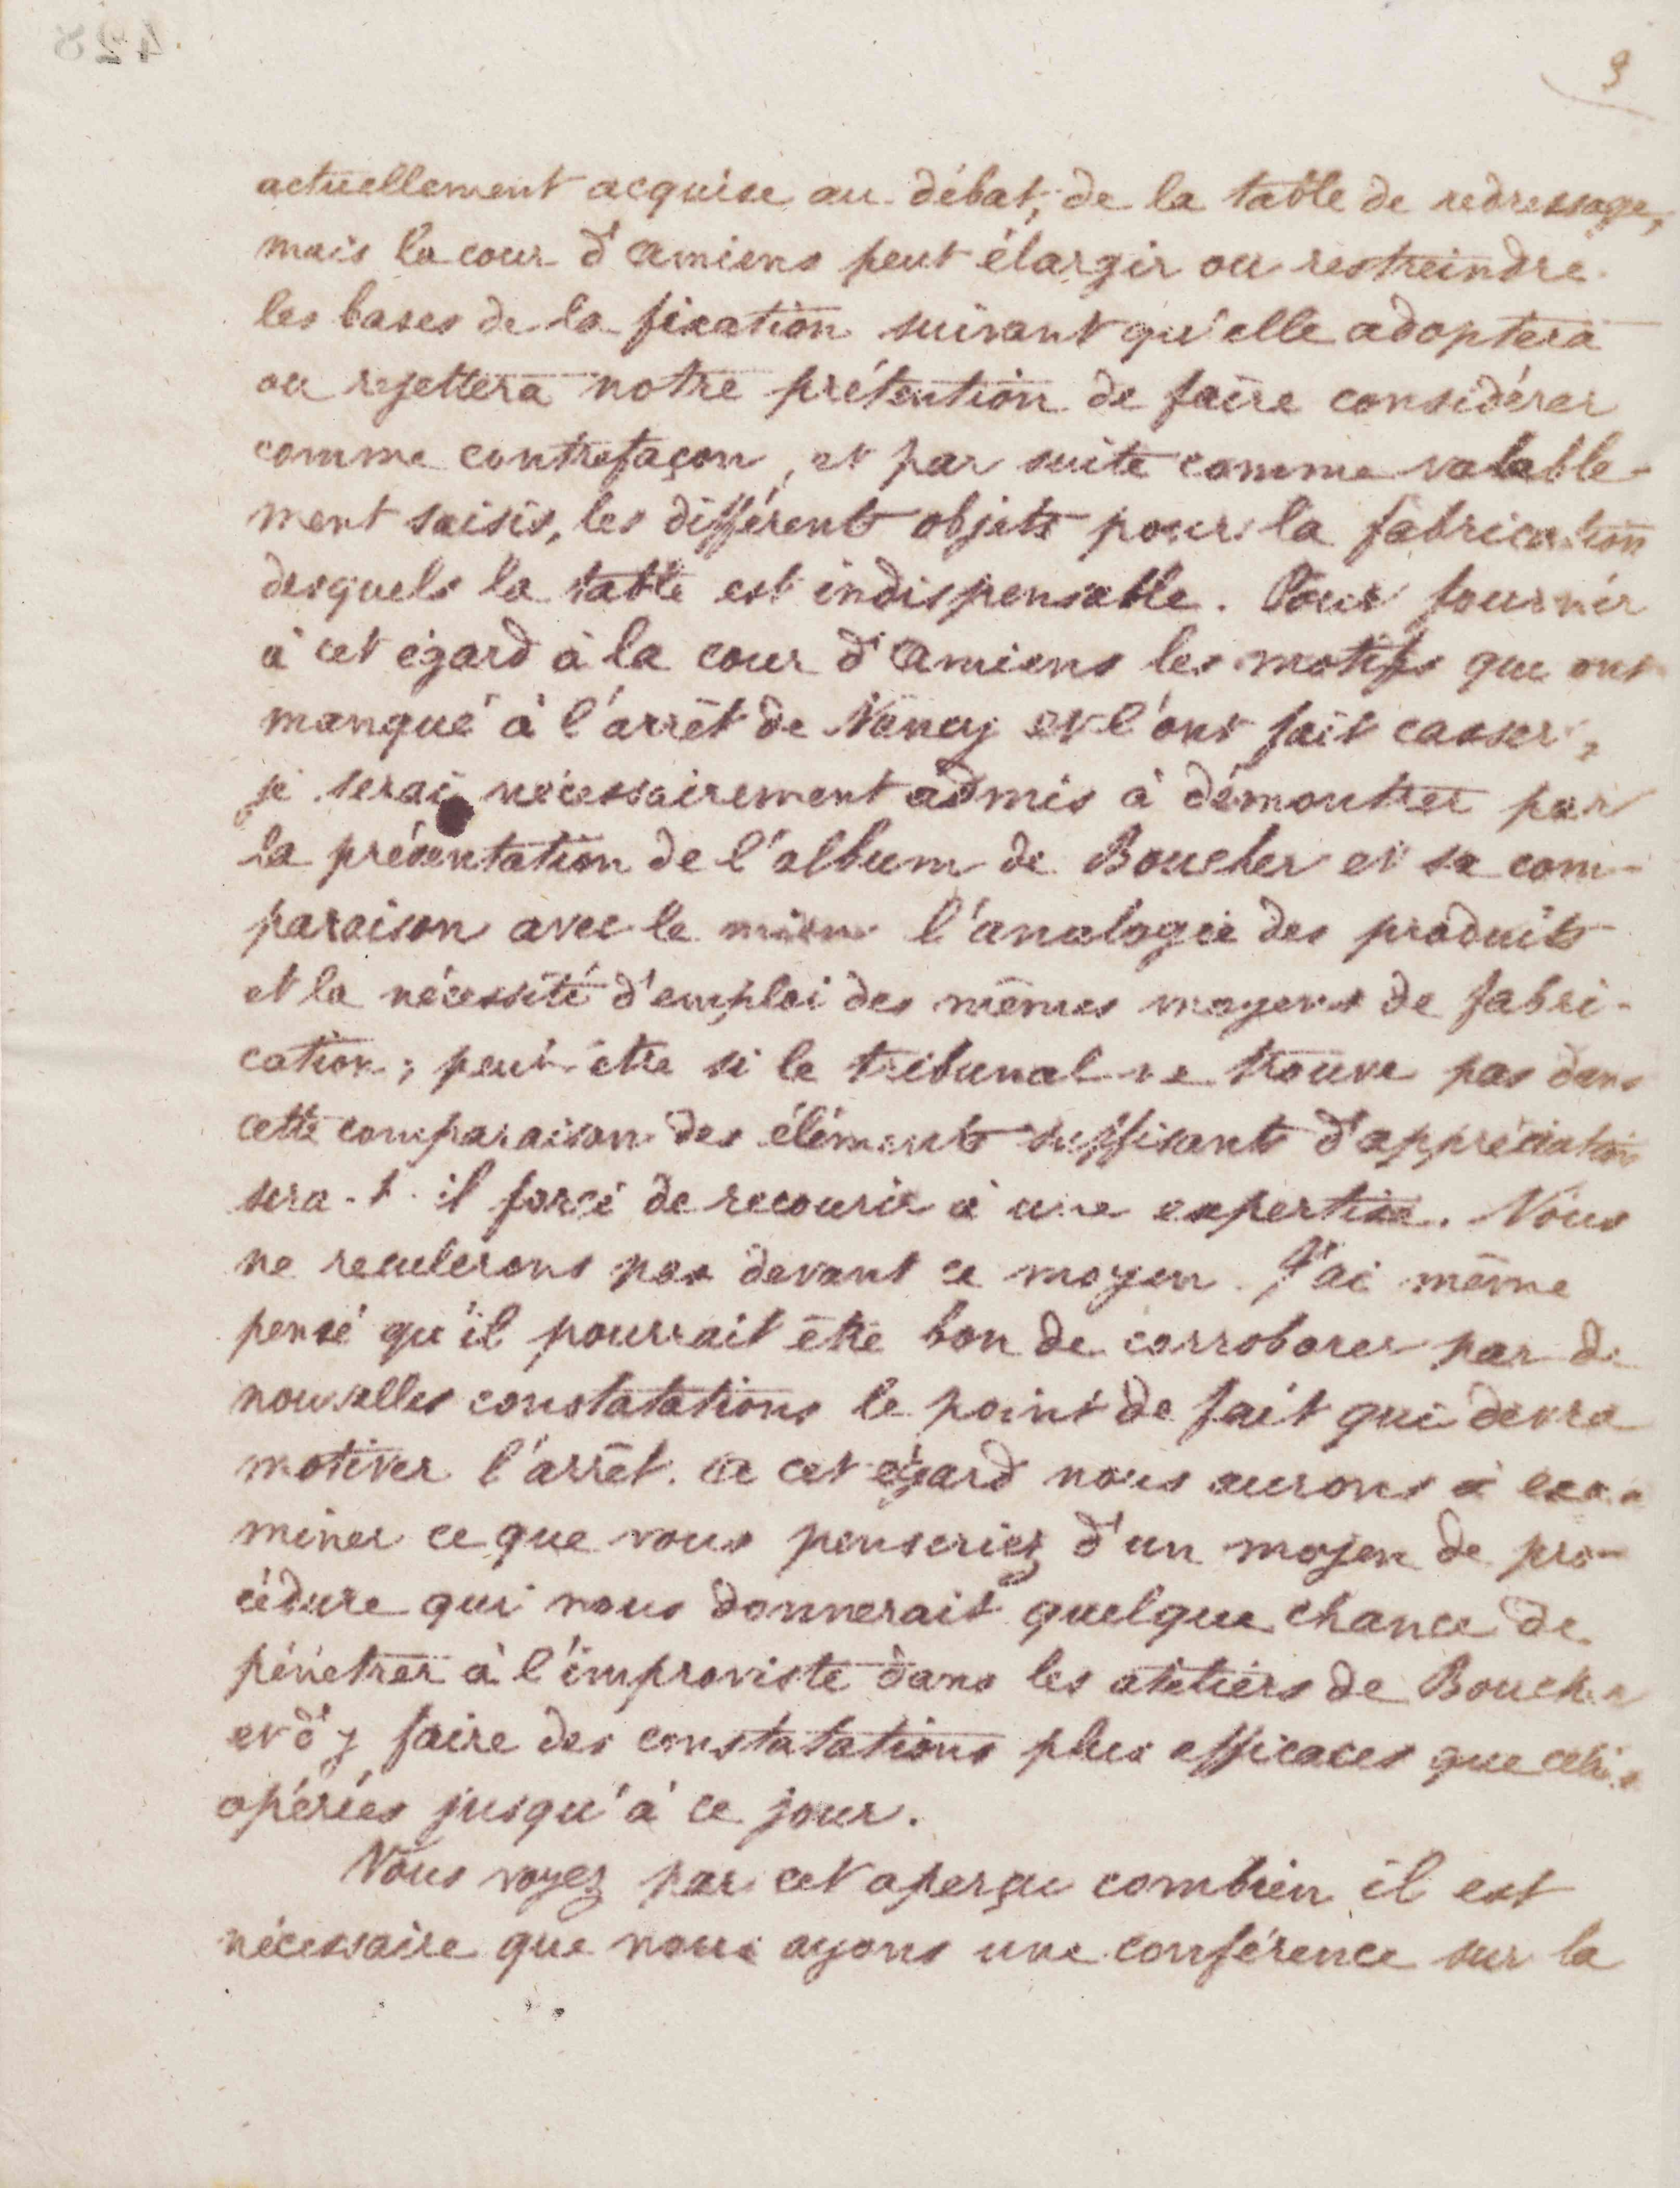 428
3
actuellement acquise au débat, de la table de redressage,
mais la cour d'amiens peut élargir ou restreindre
les bases de la fixation suivant qu'elle adoptera
ou rejettera notre prétention de faire considérer
comme contrefaçon, et par suite comme valable-
ment saisis, les différents objets pour la fabrication
desquels la table est indispensable. Pour fournir
à cet égard à la cour d'amiens les motifs qui ont
manqué à l'arrêt de Nancy et l'ont fait casser,
je serai nécessairement admis à démontrer par
la présentation de l'album de Boucher et sa com-
paraison avec le mien l'analogie des produits
et la nécessité d'emploi des mêmes moyens de fabri-
cation; peut-être si le tribunal ne trouve pas dans
cette comparaison des éléments suffisants d'appréciation
sera-t-il forcé de recourir à une expertise. Nous
ne reculerons pas devant ce moyen. J'ai même
pensé qu'il pourrait être bon de corroborer par de
nouvelles constatations le point de fait qui devra
motiver l'arrêt. a cet égard nous aurons à exa-
miner ce que vous penseriez d'un moyen de pro-
cédure qui nous donnerait quelque chance de
pénétrer à l'improviste dans les ateliers de Boucher
et d'y faire des constatations plus efficaces que celles
opérées jusqu'à ce jour.
Vous voyez par cet aperçu combien il est
nécessaire que nous ayons une conférence sur la